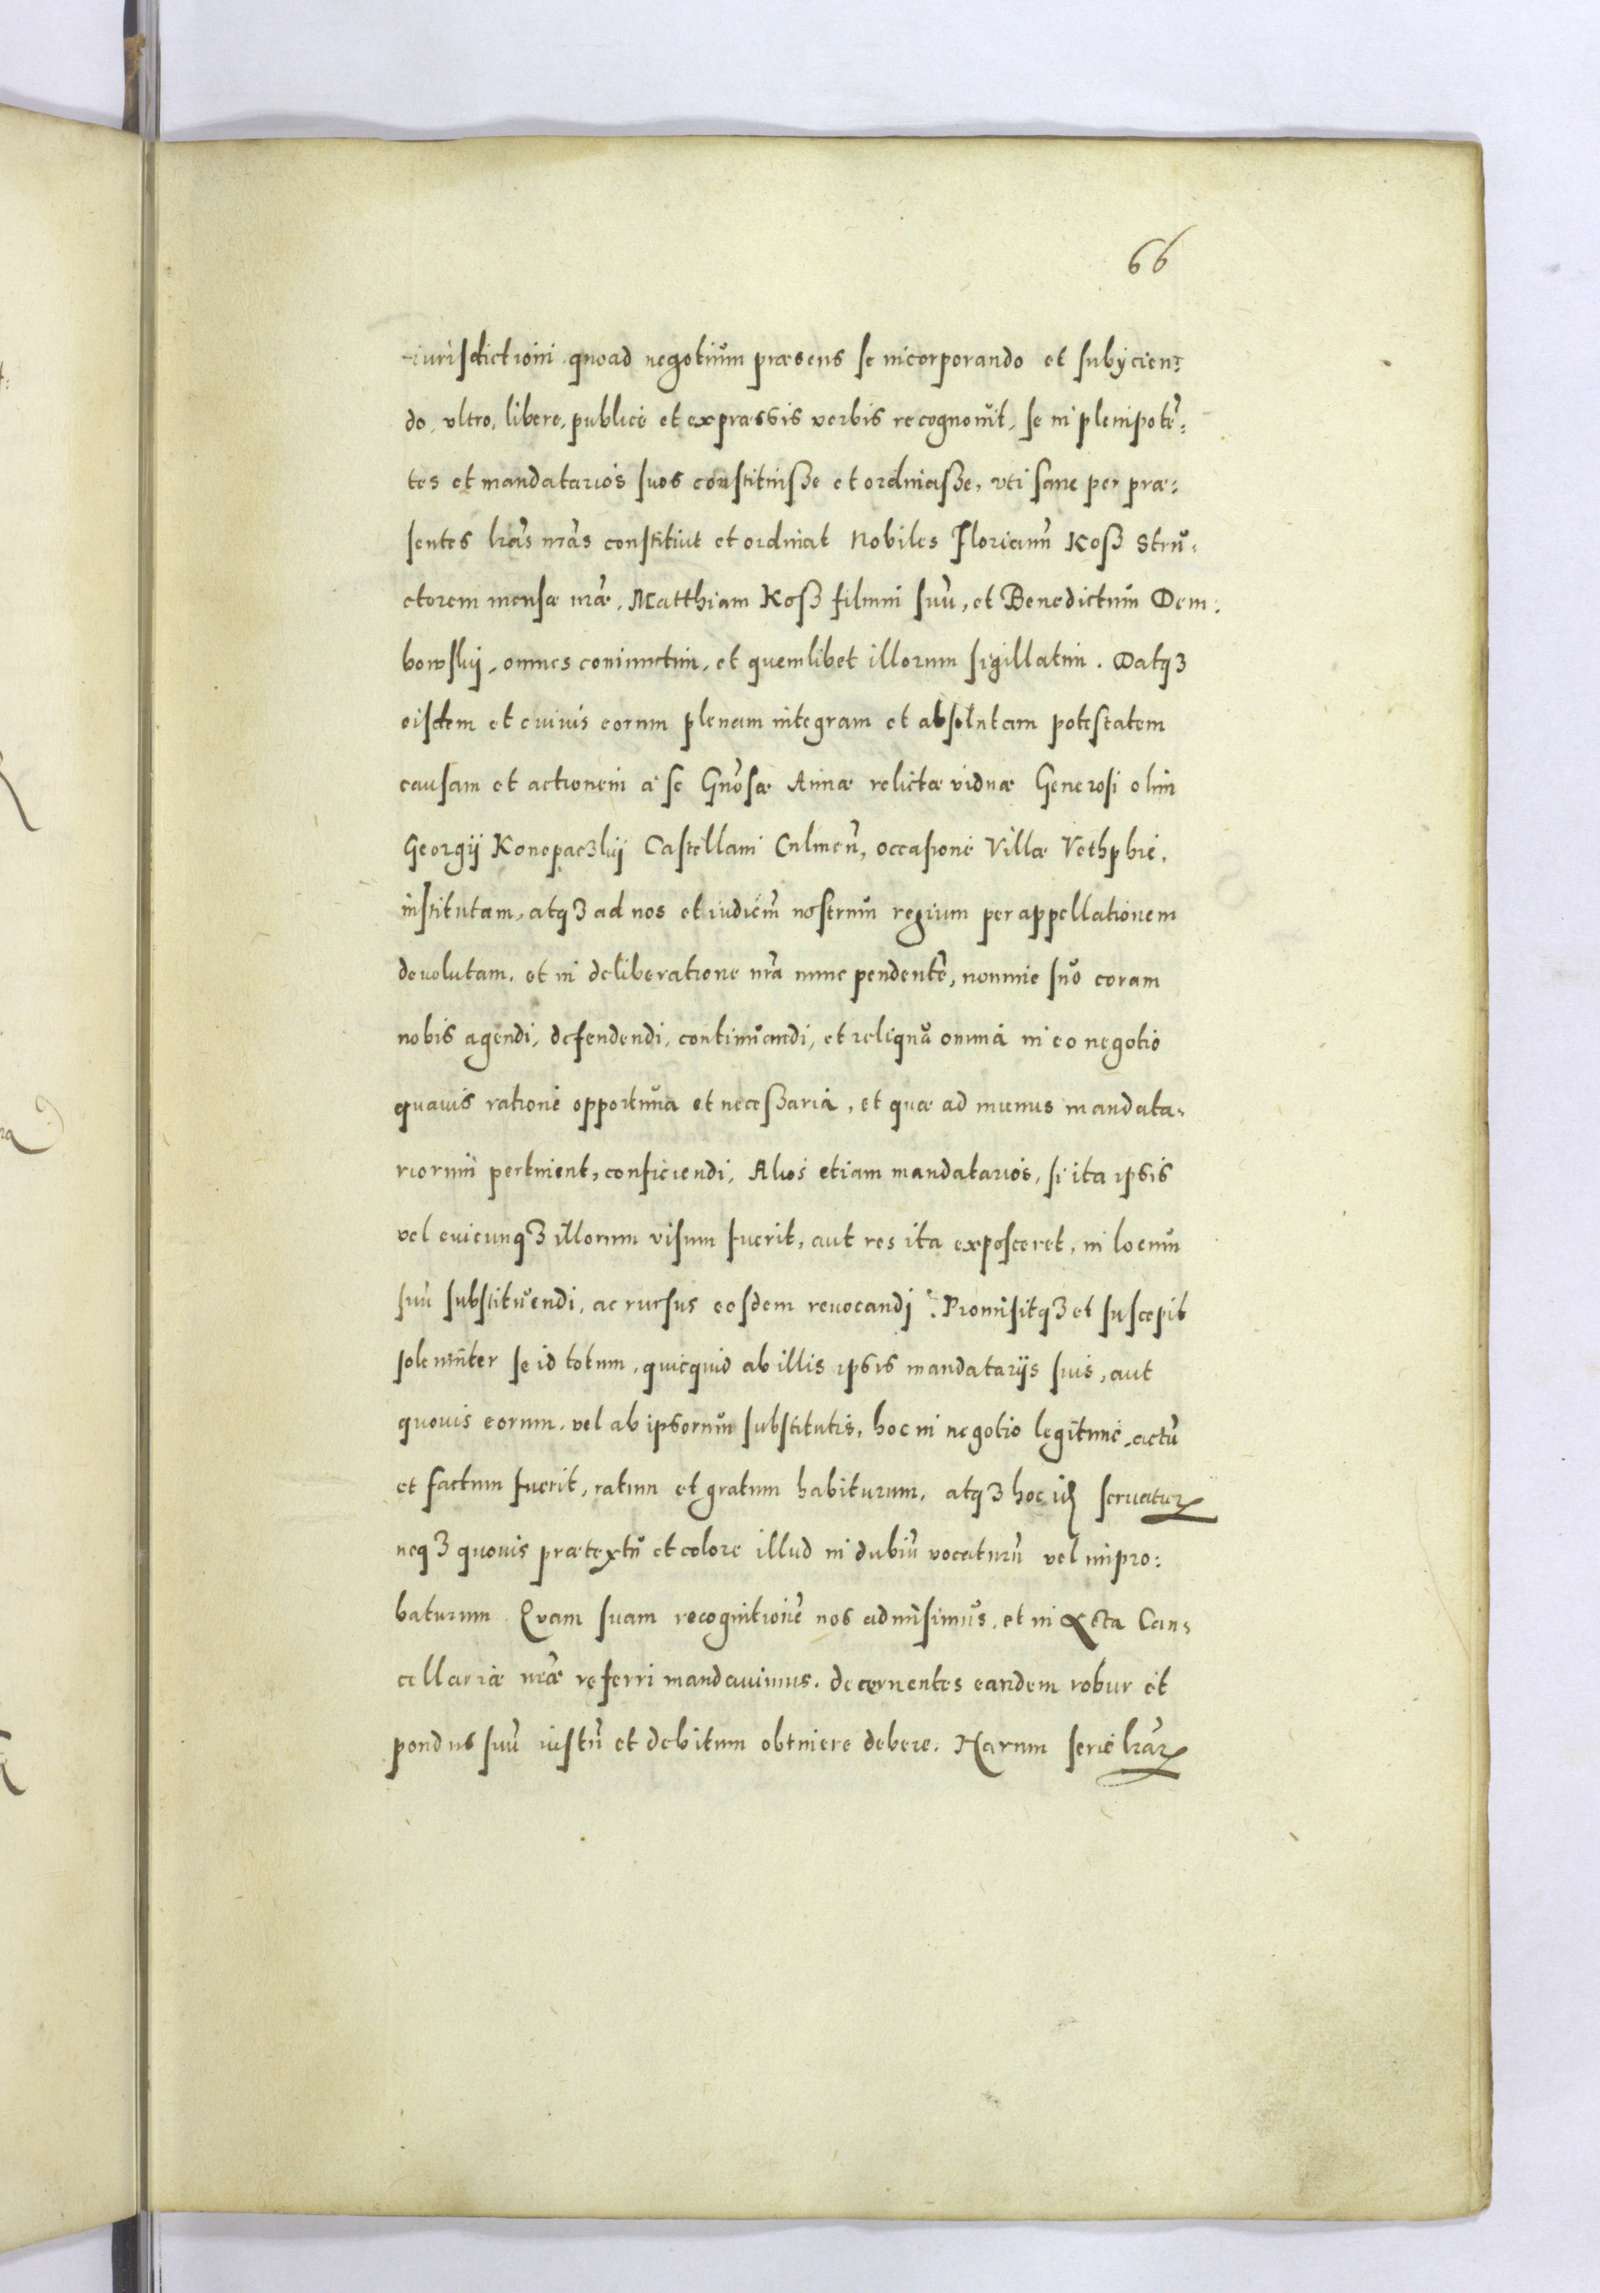 66
iurisdictioni quoad negotium præsens se incorporando et subÿcien:
do, vltro, libere, publicè et expræssis verbis recognouit, se in plenipotē:
tes et mandatarios suos constituisße et ordinasße, vti sane per præ:
sentes lrās nrās constituit et ordinat Nobiles Florianū Kosß Stru:
ctorem mensæ nrǣ, Matthiam Kosß filium suū, et Benedictum Dem:
bowskij, omnes coniunctim, et quemlibet illorum sigillatim. Datqꝫ
eisdem et cuiuis eorum plenam integram et absolutam potestatem
causam et actionem a se Gnōsæ Annæ relictæ viduæ Generosi olim
Georgij Konopaczkij Castellani Culmeñ, occasione Villæ
institutam, atqꝫ ad nos et iudiciū nostrum regium per appellationem
deuolutam, et in deliberatione nrā nunc pendentē, nomine suo coram
nobis agendi, defendendi, continuandi, et reliqua omnia in eo negotio
quauis ratione opportuna et necesßaria, et quæ ad munus mandata:
riorum pertinent, conficiendi, Alios etiam mandatarios, si ita ipsis
vel cuicunqꝫ illorum visum fuerit, aut res ita exposceret, in locum
suū substituendi, ac rursus eosdem reuocandi: Promisitqꝫ et suscepit
solemniter se id totum, quicquid ab illis ipsis mandatarijs suis, aut
quouis eorum, vel ab ipsorum substitutis, hoc in negotio legitime, actū
et factum fuerit, ratum et gratum habiturum, atqꝫ hoc seruaturꝝ
neqꝫ quouis prætextu et colore illud in dubiū vocaturū vel impro:
baturum. Quam suam recognitionē nos admisimus, et in Acta Can:
cellariæ nrǣ referri mandauimus, decernentes eandem robur et
pondus suū iustū et debitum obtinere debere. Harum serie lrāꝝ